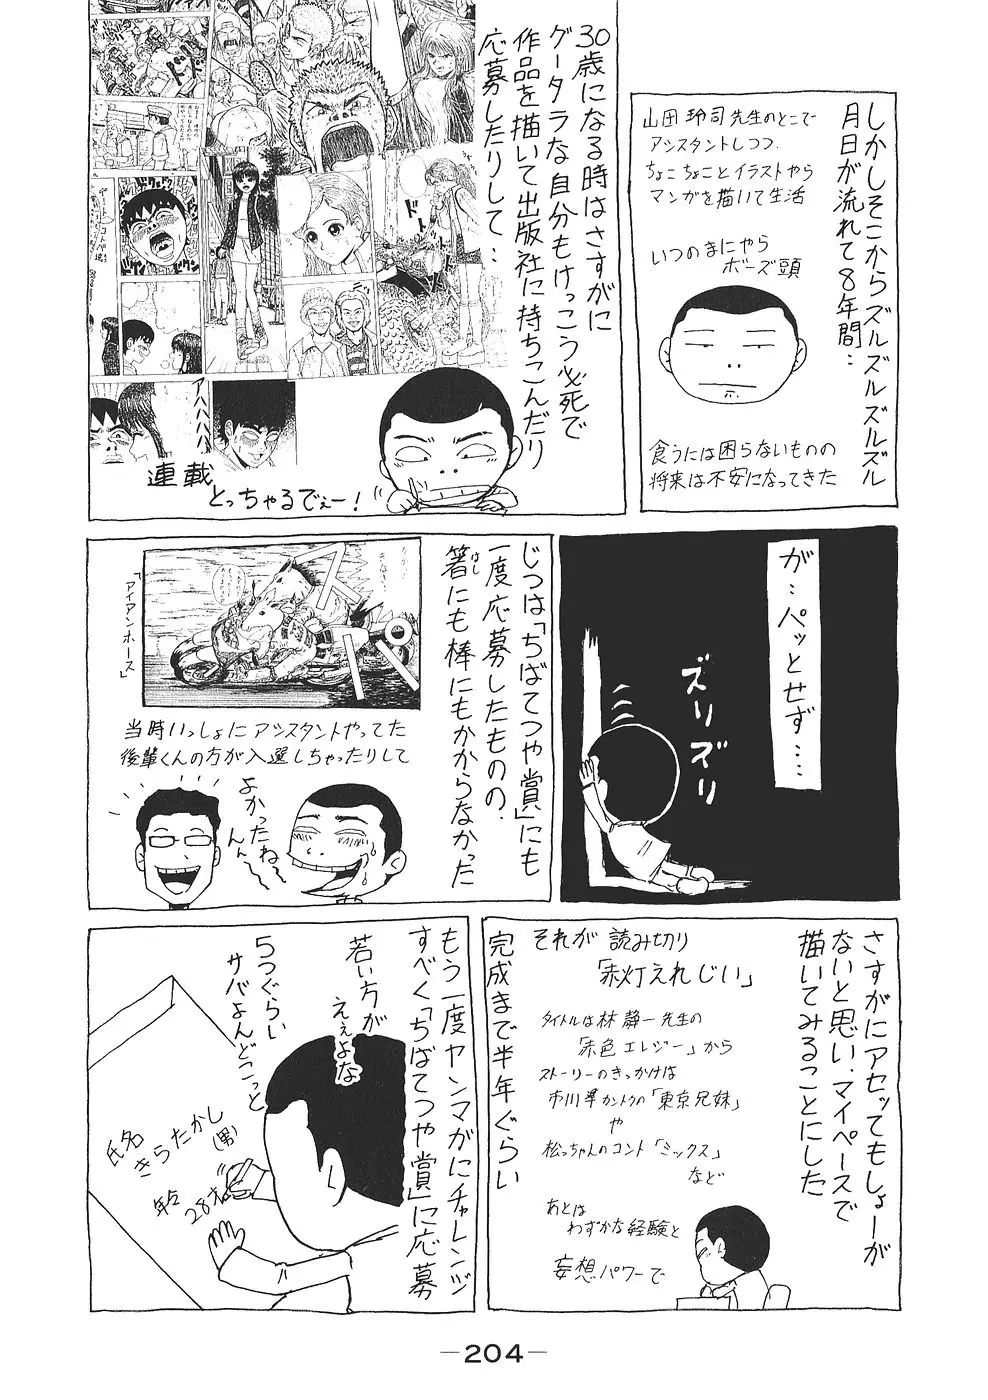 しかしそこからズルズルズルズル
月日が流れて8年間…
山田玲司先生のとこで
アシスタントしつつ
ちょこちょことイラストやら
マンガを描いて生活
いつのまにやら
ボーズ頭
食うには困らないものの
将来は不安になってきた
30歳になる時はさすがに
グータラな自分もけっこう必死で
作品を描いて出版社に持ちこんだり
応募したりして…
アハハハハハ
連載
とっちゃるでぇー!
が…パッとせず…
ズリズリ
じつは「ちばてつや賞」にも
一度応募したものの、
箸にも棒にもかからなかった
はし
「アイアンホース」
当時いっしょにアシスタントやってた
後輩くんの方が入選しちゃったりして
よかったね
さすがにアセってもしょーが
ないと思い、マイペースで
描いてみることにした
それが読み切り
「赤灯えれじい」
タイトルは林静一先生の
「赤色エレジー」から
ストーリーのきっかけは
市川準カントクの「東京兄妹」
や
松っちゃんのコント「ミックス」
など
あとは
わずかな経験と
妄想パワーで
完成まで半年ぐらい
もう一度ヤンマガにチャレンジ
すべく「ちばてつや賞」に応募
若い方が
ええよな
5つぐらい
サバよんどこっと
氏名
きらたかし
(男)
年令
28才
—204—